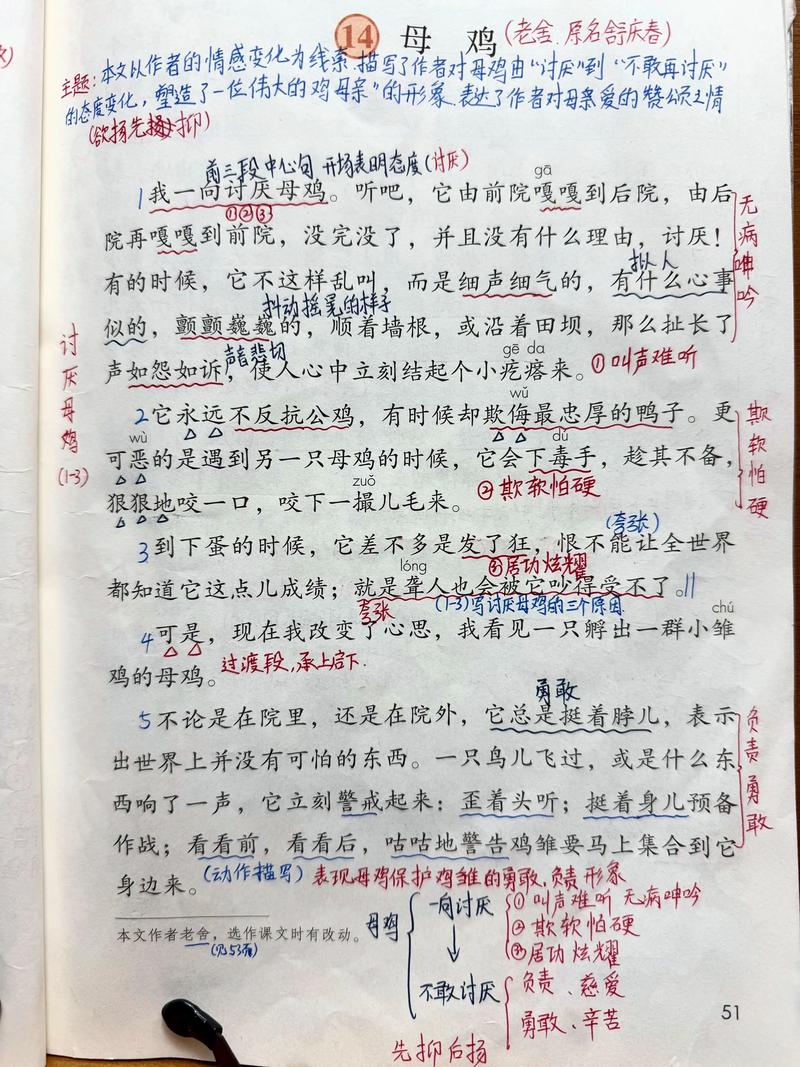 14 母鸡 (老舍.原名舒庆春)
主题:本文以作者的情感变化为线索.描写了作者对母鸡由“讨厌”到“不敢再讨厌”
的态度变化，塑造了一位伟大的鸡母亲”的形象.表达了作者对母亲爱的赞颂之情
(欲扬先抑)
前三段中心句 开场表明态度(讨厌)
gā
1我一向讨厌母鸡。听吧，它由前院嘎嘎到后院，由后
①②③
院再嘎嘎到前院，没完没了，并且没有什么理由，讨厌！
拟人
有的时候，它不这样乱叫，而是细声细气的，有什么心事
抖动摇晃的样子
似的，颤颤巍巍的，顺着墙根，或沿着田坝，那么扯长了
声音悲切
gē da
声如怨如诉，使人心中立刻结起个小疙瘩来。①叫声难听
无病呻吟
wǔ
2它永远不反抗公鸡，有时候却欺侮最忠厚的鸭子。更
wù
dú
可恶的是遇到另一只母鸡的时候，它会下毒手，趁其不备，
zuǒ
狠狠地咬一口，咬下一撮儿毛来。②欺软怕硬
欺软怕硬
讨厌母鸡(1-3)
(夸张)
3到下蛋的时候，它差不多是发了狂，恨不能让全世界
③居功炫耀
lóng
都知道它这点儿成绩；就是聋人也会被它吵得受不了。||
夸张
(1-3)写讨厌母鸡的三个原因.
chú
4可是，现在我改变了心思，我看见一只孵出一群小雏
鸡的母鸡。过渡段,承上启下.
勇敢
5不论是在院里，还是在院外，它总是挺着脖儿，表示
出世界上并没有可怕的东西。一只鸟儿飞过，或是什么东
西响了一声，它立刻警戒起来：歪着头听；挺着身儿预备
作战；看看前，看看后，咕咕地警告鸡雏要马上集合到它
身边来。(动作描写)表现母鸡保护鸡雏的勇敢.负责形象
负责勇敢
本文作者老舍，选作课文时有改动。
(见53页)
母鸡
一向讨厌
①叫声难听 无病呻吟
②欺软怕硬
③居功炫耀
不敢讨厌
负责、慈爱
勇敢、辛苦
先抑后扬
51